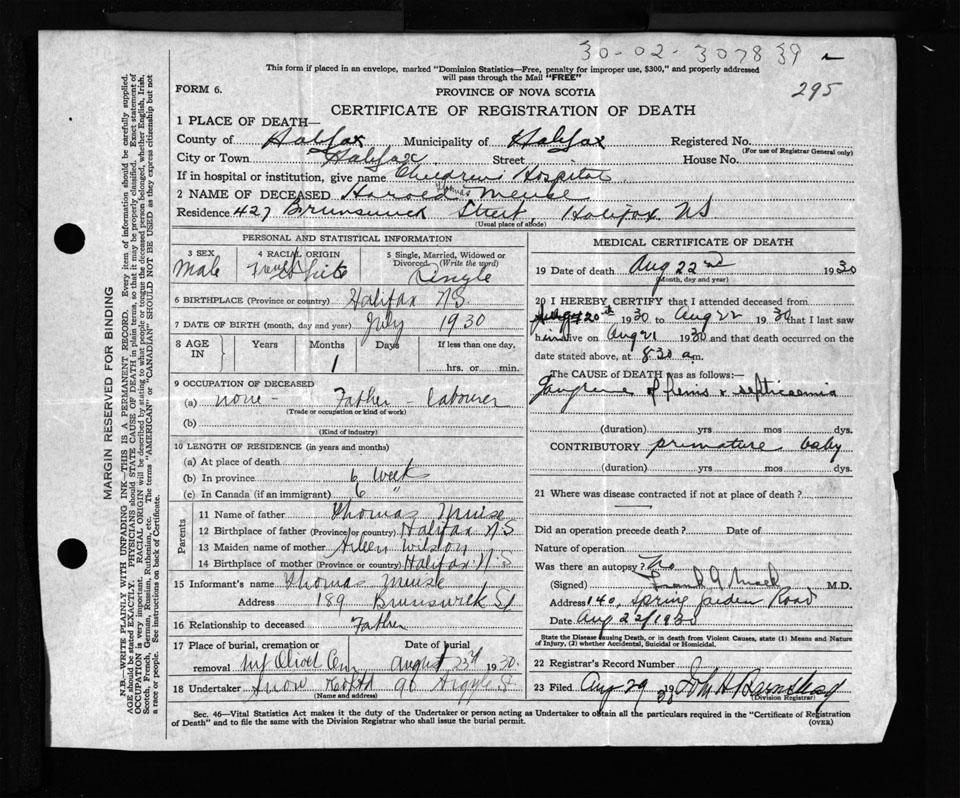 30-02-307839
295
This form if placed in an envelope, marked "Dominion Statistics—Free, penalty for improper use, $300," and properly addressed
will pass through the Mail "FREE"
FORM 6.
PROVINCE OF NOVA SCOTIA
CERTIFICATE OF REGISTRATION OF DEATH
1 PLACE OF DEATH—
County of Halifax Municipality of Halifax Registered No.
(For use of Registrar General only)
City or Town Halifax Street House No.
If in hospital or institution, give name Children's Hospital
2 NAME OF DECEASED Harold Thomas Meuse
Residence 427 Brunswick Street, Halifax NS
(Usual place of abode)
PERSONAL AND STATISTICAL INFORMATION
3 SEX Male
4 RACIAL ORIGIN White
5 Single, Married, Widowed or Divorced (Write the word) Single
6 BIRTHPLACE (Province or country) Halifax N.S.
7 DATE OF BIRTH (month, day and year) July 1930
8 AGE IN Years Months Days If less than one day,
1 hrs. or min.
9 OCCUPATION OF DECEASED
(a) none - Father - labourer
(Trade or occupation or kind of work)
(b)
(Kind of industry)
10 LENGTH OF RESIDENCE (in years and months)
(a) At place of death
(b) In province 6 Week
(c) In Canada (if an immigrant) 6 "
Parents
11 Name of father Thomas Muise
12 Birthplace of father (Province or country) Halifax N.S
13 Maiden name of mother Wilson
14 Birthplace of mother (Province or country) Halifax N.S
15 Informant's name Thomas Meuse
Address 189 Brunswick St
16 Relationship to deceased Father
17 Place of burial, cremation or removal Mt Olivet Cem Date of burial August 23rd 1930.
18 Undertaker Snow & Co Ltd 90 Argyle St
(Name and address)
MEDICAL CERTIFICATE OF DEATH
19 Date of death Aug 22nd 1930
(Month, day and year)
20 I HEREBY CERTIFY that I attended deceased from
20th 1930 to Aug 22 1930 that I last saw
him alive on Aug 21 1930 and that death occurred on the
date stated above, at 8.30 a.m.
The CAUSE of DEATH was as follows:—
Gangrene of penis & septicaemia
(duration) yrs mos dys.
CONTRIBUTORY premature baby
(duration) yrs mos dys.
21 Where was disease contracted if not at place of death?
Did an operation precede death? Date of
Nature of operation
Was there an autopsy? No
(Signed) M.D.
Address 140, Spring Garden Road
Date Aug 22/1930
State the Disease causing Death, or in death from Violent Causes, state (1) Means and Nature
of Injury, (2) whether Accidental, Suicidal or Homicidal.
22 Registrar's Record Number
23 Filed Aug 29 1930 John H Barnstead
(Division Registrar)
Sec. 46—Vital Statistics Act makes it the duty of the Undertaker or person acting as Undertaker to obtain all the particulars required in the "Certificate of Registration
of Death" and to file the same with the Division Registrar who shall issue the burial permit.
(OVER)
MARGIN RESERVED FOR BINDING
N.B.—WRITE PLAINLY WITH UNFADING INK—THIS IS A PERMANENT RECORD. Every item of information should be carefully supplied.
AGE should be stated EXACTLY. PHYSICIANS should STATE CAUSE OF DEATH in plain terms, so that it may be properly classified. Exact statement of
OCCUPATION is very important. RACIAL ORIGIN will be described by stating to what people or tongue the deceased person belonged, whether English, Irish,
Scotch, French, German, Russian, Ruthenian, etc. The terms "AMERICAN" or "CANADIAN" SHOULD NOT BE USED as they express citizenship but not
a race or people. See instructions on back of Certificate.